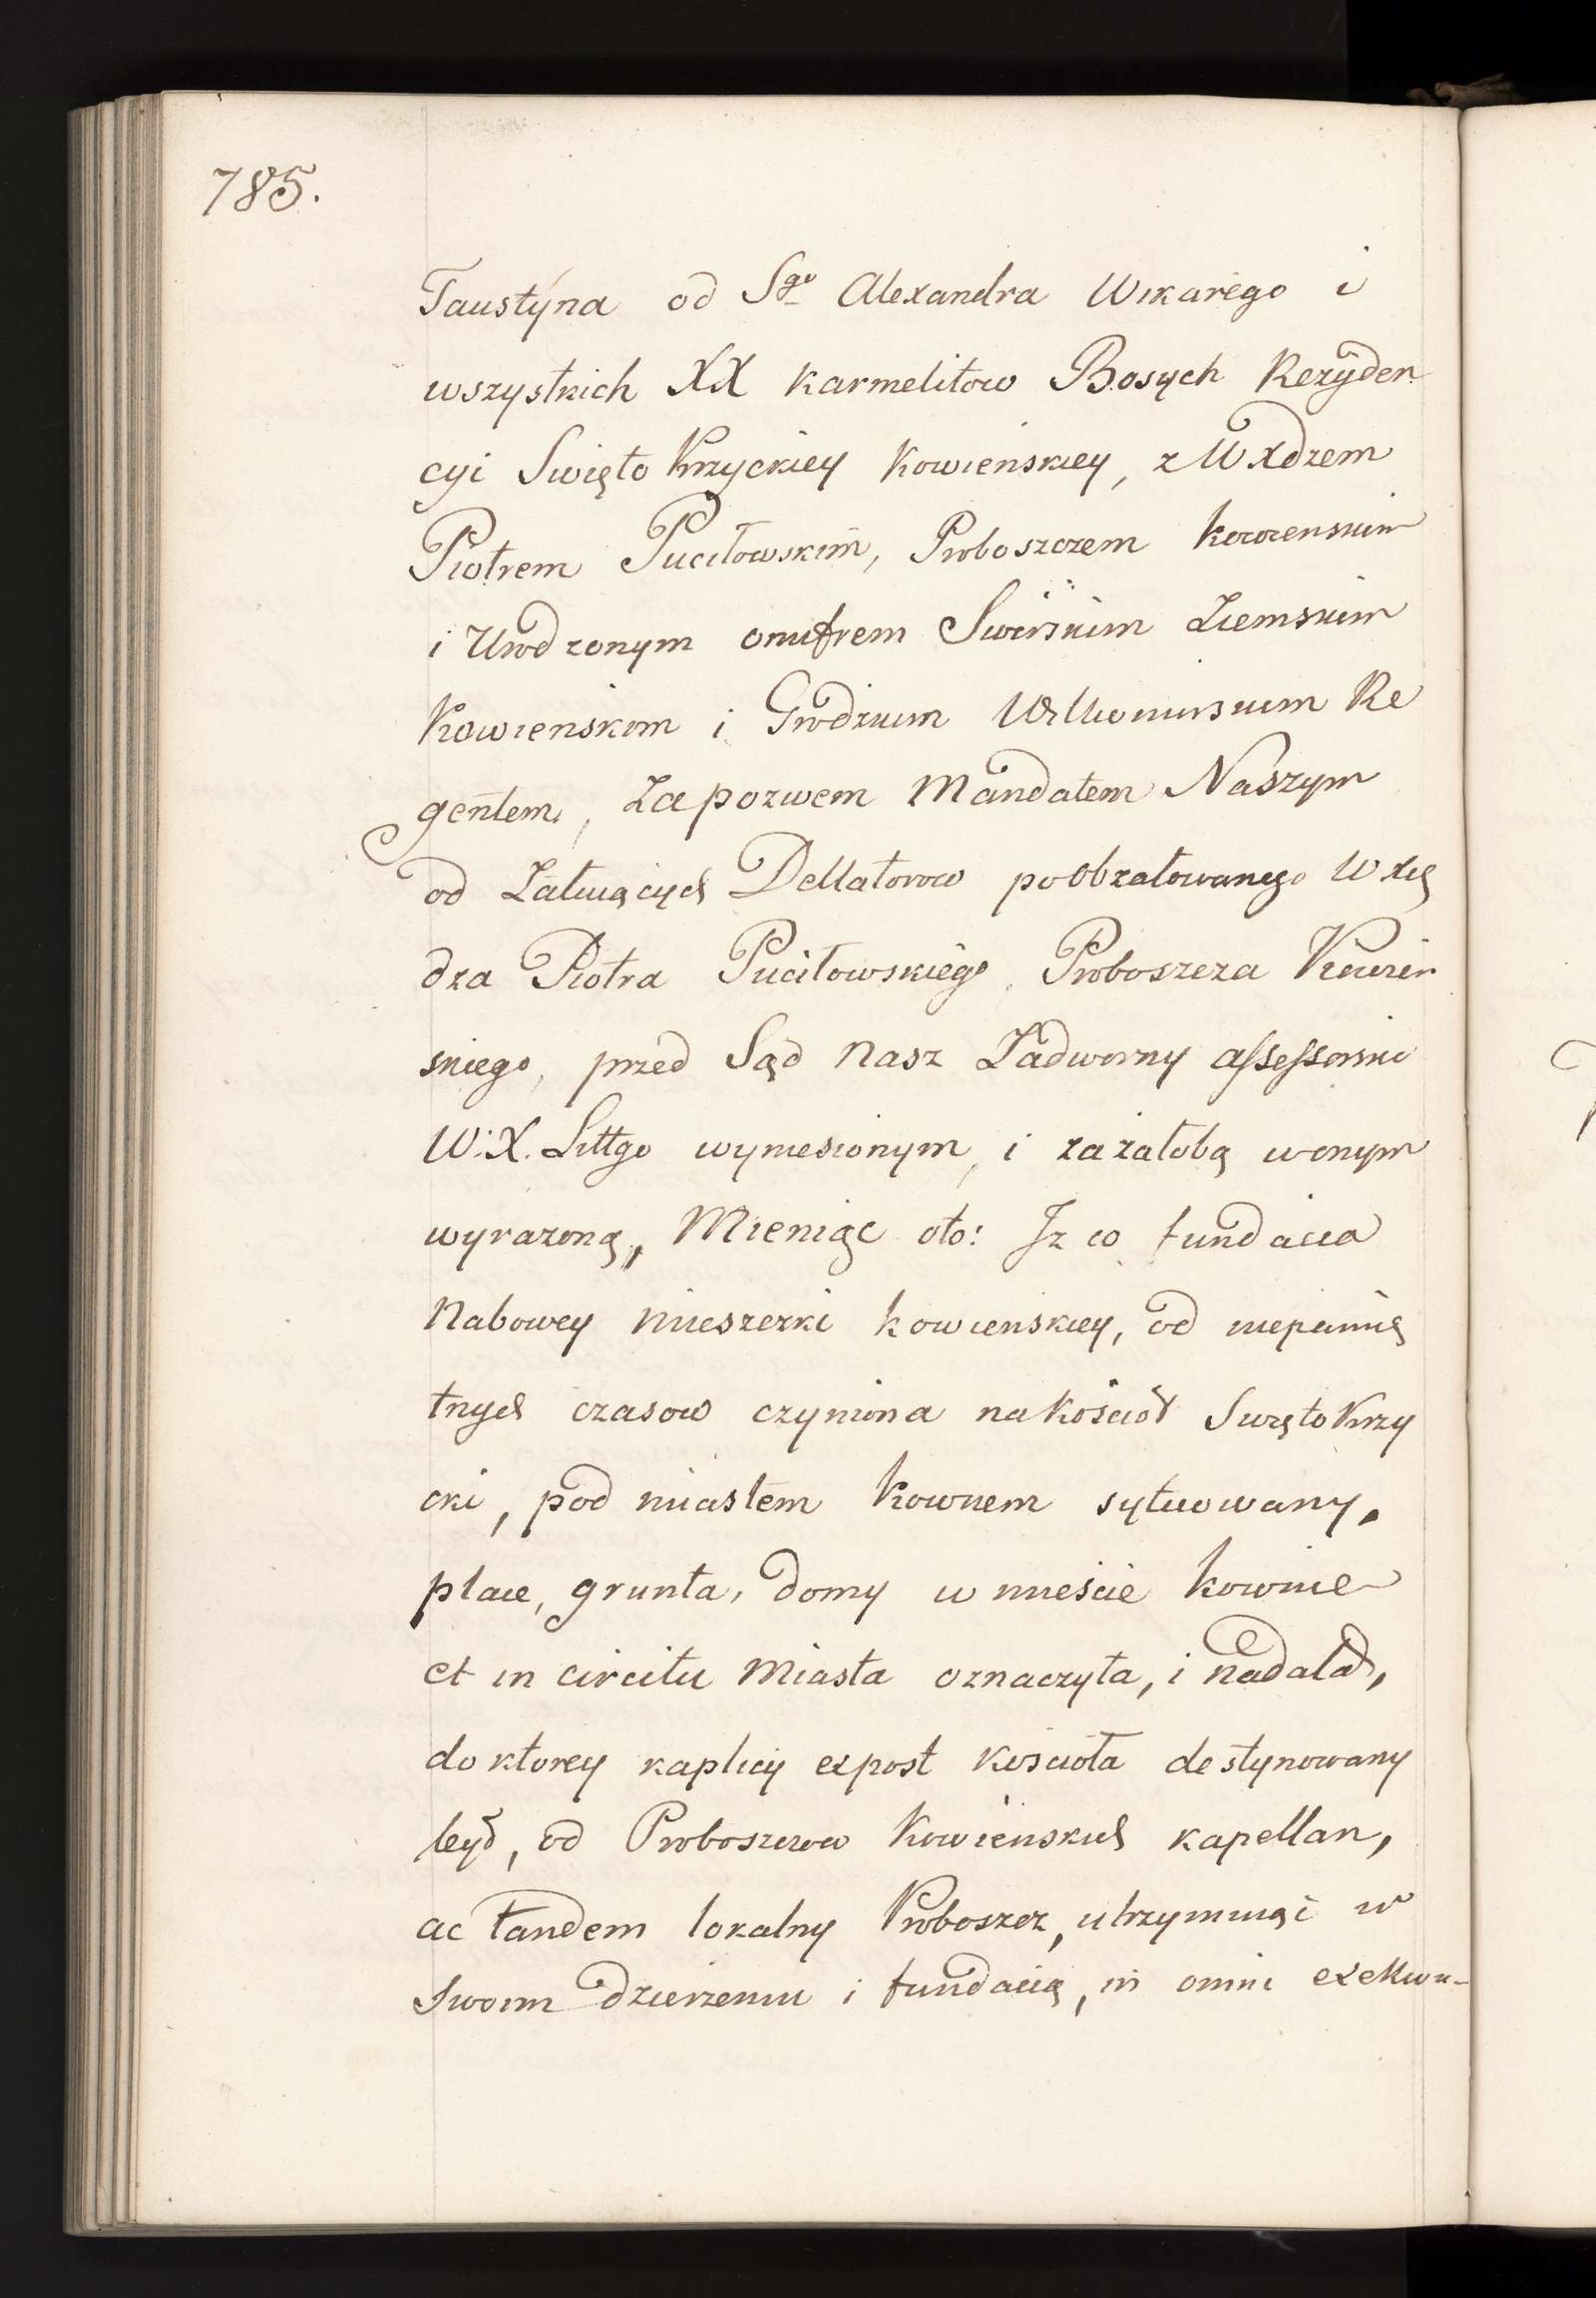 785.
Faustyna od Sgo Alexandra Wikarego i
wszystkich XX Karmelitow Bosych Rezyden
cyi Swięto Krzyckiey Kowienskiey, z W Xdzem
Piotrem Puciłowskim, Proboszczem kowienskim
i Urodzonym onufrem Swirskim Ziemskim
Kowienskim i Grodzkim Wiłkomirskim Re
gentem, Za pozwem Mandatem Naszym
od Załuiących Dellatorow po obżałowanego W Xię
dza Piotra Puciłowskiego, Proboszcza Kowien
skiego, przed Sąd Nasz Zadworny assessorski
W: X. Littgo wyniesionym, i za żałobą w onym
wyrazoną, Mieniąc oto: Iz co fundacia
Nabowey Mieszczki kowienskiey, od niepamię
tnych czasow czyniona na Kościoł Swięto Krzy
cki, pod miastem Kownem sytuowany,
place, grunta, domy w mieście kownie
et in circitu Miasta oznaczyła, i nadała,
do ktorey kaplicy ex post koscioła destynowany
był, od Proboszczow Kowienskich kapellan,
ac tandem lokalny Proboszcz, utrzymuiąc w
Swoim dzierzeniu i fundacią, in omni exekwu-